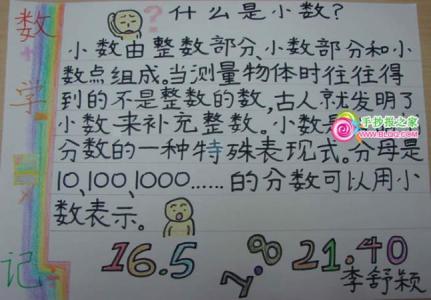 数
学
日
记
什么是小数?
小数由整数部分、小数部分和小
数点组成。当测量物体时往往得
到的不是整数的数,古人就发明了
小数,来补充整数。小数是
分数的一种特殊表现式。分母是
10,100,1000……的分数可以用小
数表示。
16.5
21.40
李舒颖
手抄报之家